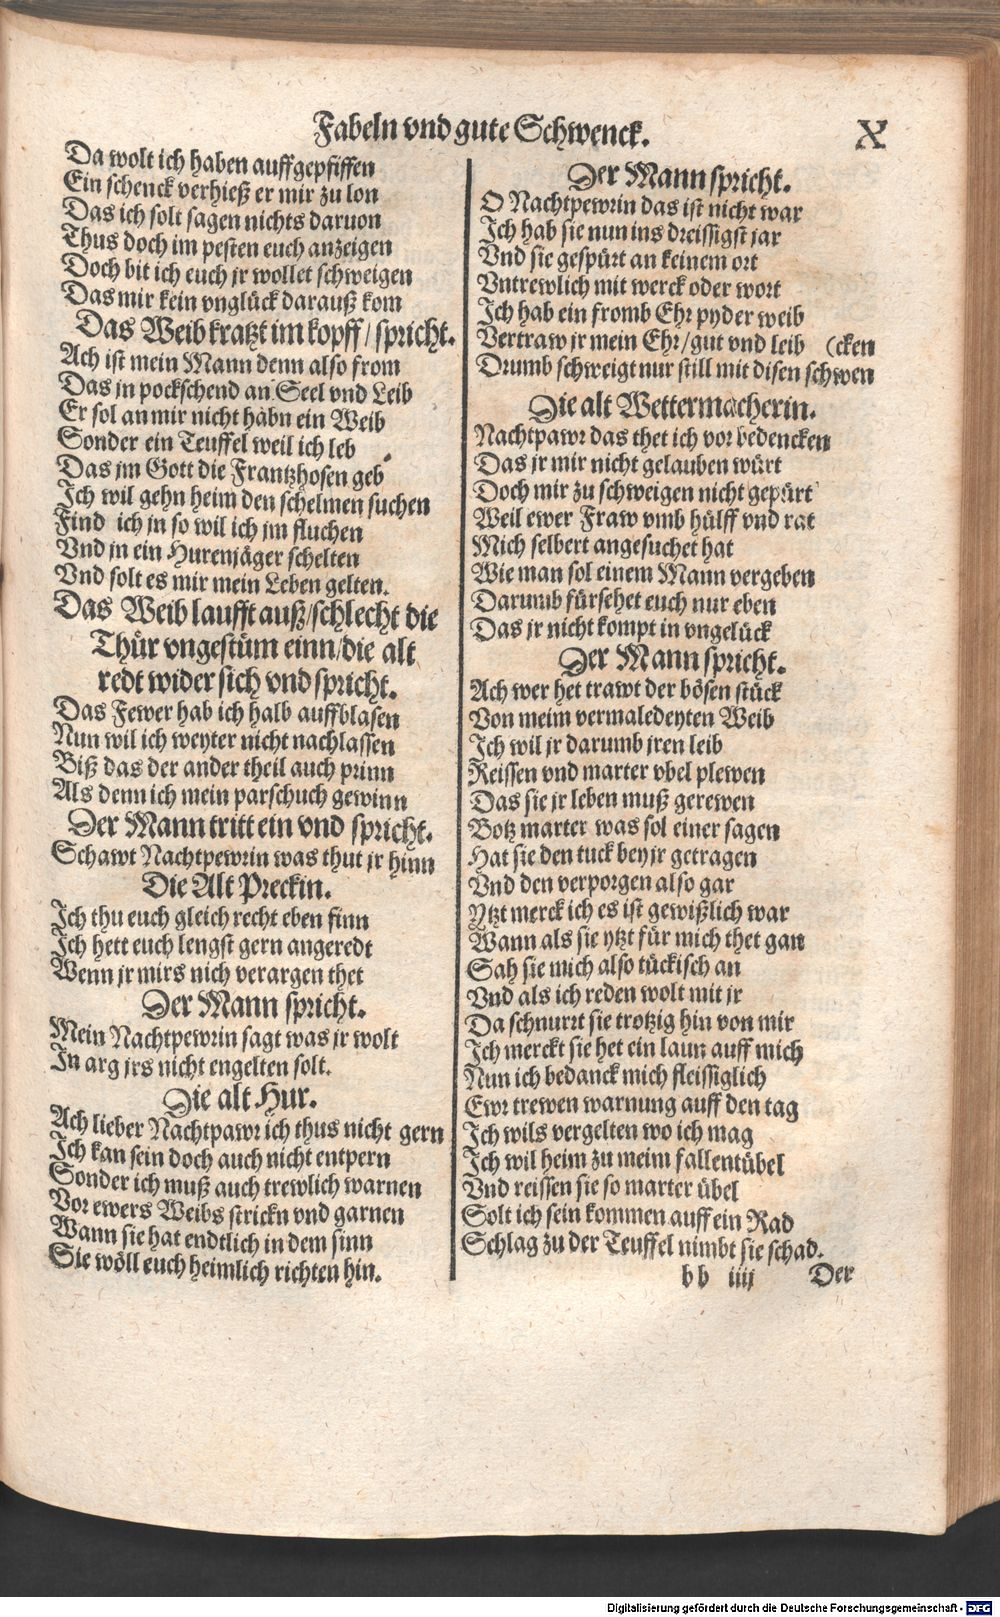 Fabeln vnd gute Schwenck. X
Da wolt ich haben auffgepfiffen
Ein schenck verhieß er mir zu lon
Das ich solt sagen nichts daruon
Thus doch im pesten euch anzeigen
Doch bit ich euch jr wollet schweigen
Das mir kein vnglück darauß kom
Das Weib kratzt im kopff / spricht.
Ach ist mein Mann denn also from
Das jn pockschend an Seel vnd Leib
Er sol an mir nicht habn ein Weib
Sonder ein Teuffel weil ich leb
Das jm Gott die Frantzhosen geb
Ich wil gehn heim den schelmen suchen
Find ich jn so wil ich jm fluchen
Vnd jn ein Hurenjäger schelten
Vnd solt es mir mein Leben gelten.
Das Weib laufft auß/schlecht die
Thür vngestüm einn/die alt
redt wider sich vnd spricht.
Das Fewer hab ich halb auffblasen
Nun wil ich weyter nicht nachlassen
Biß das der ander theil auch prinn
Als denn ich mein parschuch gewinn
Der Mann tritt ein vnd spricht.
Schawt Nachtpewrin was thut jr hinn
Die Alt Preckin.
Ich thu euch gleich recht eben finn
Ich hett euch lengst gern angeredt
Wenn jr mirs nich verargen thet
Der Mann spricht.
Mein Nachtpewrin sagt was jr wolt
In arg jrs nicht engelten solt.
Die alt Hur.
Ach lieber Nachtpawr ich thus nicht gern
Ich kan sein doch auch nicht entpern
Sonder ich muß auch trewlich warnen
Vor ewers Weibs strickn vnd garnen
Wann sie hat endtlich in dem sinn
Sie wöll euch heimlich richten hin.
Der Mann spricht.
O Nachtpewrin das ist nicht war
Ich hab sie nun ins dreissigst jar
Vnd sie gespürt an keinem ort
Vntrewlich mit werck oder wort
Ich hab ein fromb Ehr pyder weib
Vertraw jr mein Ehr/gut vnd leib (cken
Drumb schweigt nur still mit disen schwen
Die alt Wettermacherin.
Nachtpawr das thet ich vor bedencken
Das jr mir nicht gelauben würt
Doch mir zu schweigen nicht gepürt
Weil ewer Fraw vmb hülff vnd rat
Mich selbert angesuchet hat
Wie man sol einem Mann vergeben
Darumb fürsehet euch nur eben
Das jr nicht kompt in vngelück
Der Mann spricht.
Ach wer het trawt der bösen stück
Von meim vermaledeyten Weib
Ich wil jr darumb jren leib
Reissen vnd marter vbel plewen
Das sie jr leben muß gerewen
Botz marter was sol einer sagen
Hat sie den tuck bey jr getragen
Vnd den verporgen also gar
Ytzt merck ich es ist gewißlich war
Wann als sie ytzt für mich thet gan
Sah sie mich also tückisch an
Vnd als ich reden wolt mit jr
Da schnurrt sie trotzig hin von mir
Ich merckt sie het ein laun auff mich
Nun ich bedanck mich fleissiglich
Ewr trewen warnung auff den tag
Ich wils vergelten wo ich mag
Ich wil heim zu meim fallentübel
Vnd reissen sie so marter übel
Solt ich sein kommen auff ein Rad
Schlag zu der Teuffel nimbt sie schad.
bb iiij Der
Digitalisierung gefördert durch die Deutsche Forschungsgemeinschaft - DFG